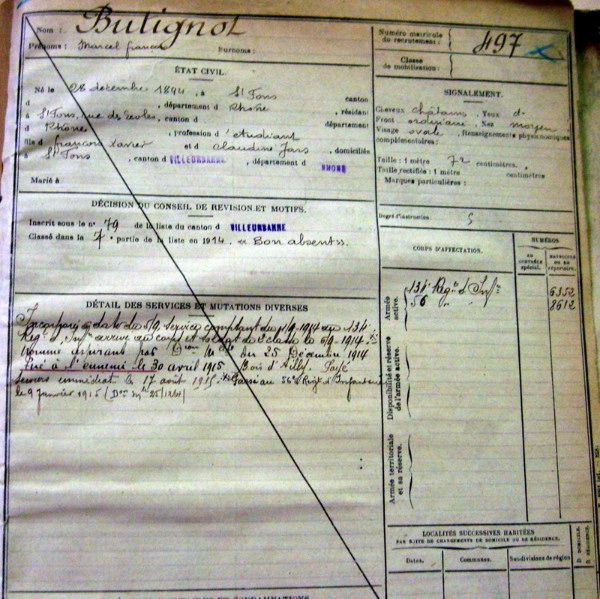 Nom : Butignot
Prénoms : Marcel
Surnoms :
Numéro matricule du recrutement : 497
Classe de mobilisation :
ÉTAT CIVIL.
Né le 28 décembre 1894, à St Fons canton
d , département d Rhône, résidant
à St Fons, rue des Ecoles, canton d département
d Rhône, profession d'étudiant
fils d François Xavier et d Claudine Jars, domiciliés
à St Fons, canton d VILLEURBANNE, département d RHONE
Marié à
SIGNALEMENT.
Cheveux châtains, Yeux d
Front ordinaire, Nez moyen
Visage ovale, Renseignements physionomiques
complémentaires :
Taille : 1 mètre 72 centimètres.
Taille rectifiée : 1 mètre centimètres
Marques particulières :
Degré d'instruction :
DÉCISION DU CONSEIL DE REVISION ET MOTIFS.
Inscrit sous le n° 79 de la liste du canton d VILLEURBANNE
Classé dans la partie de la liste en 1914. « Bon absent ».
CORPS D'AFFECTATION.
NUMÉROS
au contrôle spécial.
matricule ou au répertoire.
Armée active.
134e Régt d'Inftie 6352
56 2612
Disponibilité et réserve de l'armée active.
Armée territoriale et sa réserve.
DÉTAIL DES SERVICES ET MUTATIONS DIVERSES
Incorporé à dater du service comptant du 1914 du 134
Rég. d'Inf. arrivé au corps et soldat de 2 classe le 1914.
Nommé aspirant du 25 Décembre 1914
Tué à l'ennemi le 30 avril 1915 Bois d'Ailly
17 août 1915. Passé au 56e Régt d'Infanterie
le 9 Janvier 1915
LOCALITÉS SUCCESSIVES HABITÉES
PAR SUITE DE CHANGEMENTS DE DOMICILE OU DE RÉSIDENCE.
Dates. Communes. Subdivisions de région
D. DOMICILE.
R. RÉSIDENCE.